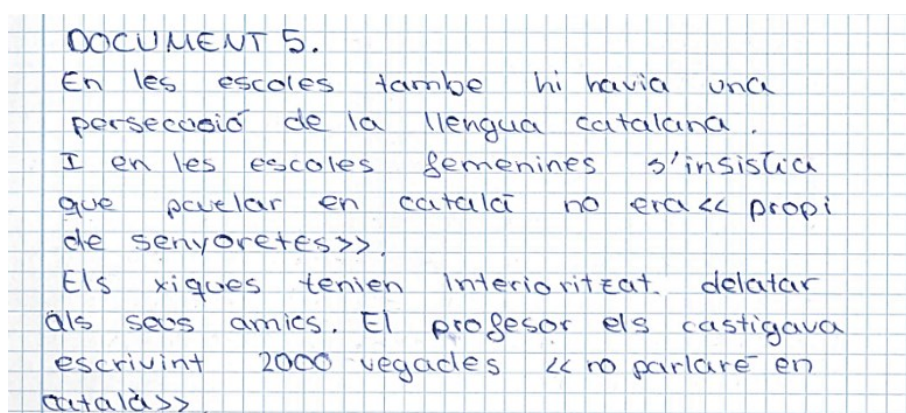 DOCUMENT 5.
En les escoles tambe hi havia una
persecusió de la llengua catalana.
I en les escoles femenines s'insistia
que parlar en català no era << propi
de senyoretes>>.
Els xiques tenien interioritzat delatar
als seus amics. El profesor els castigava
escrivint 2000 vegades << no parlaré en
català>>